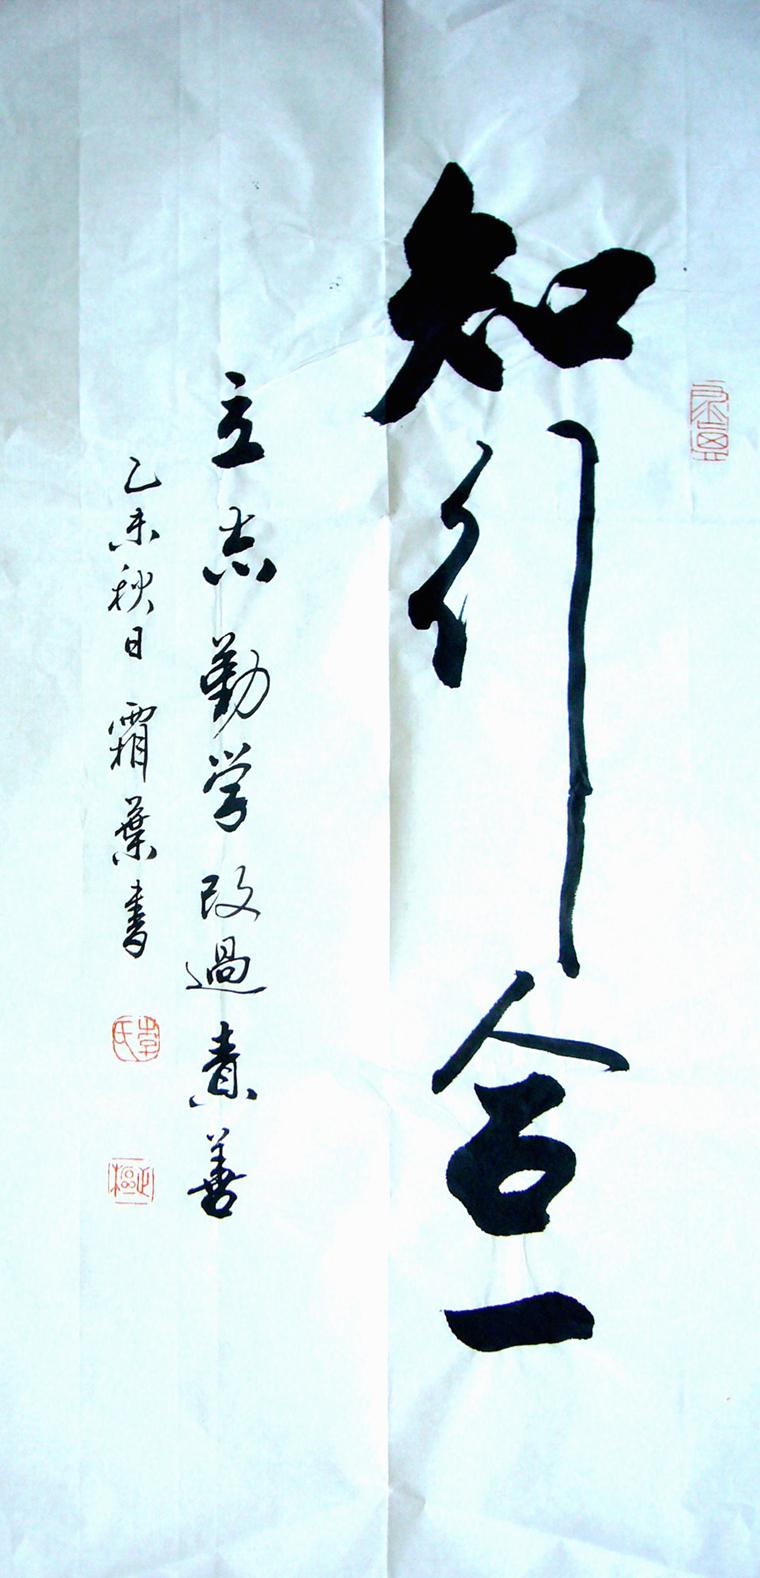 知行合一
立志勤学改過責善
乙未秋日霜葉書
李氏